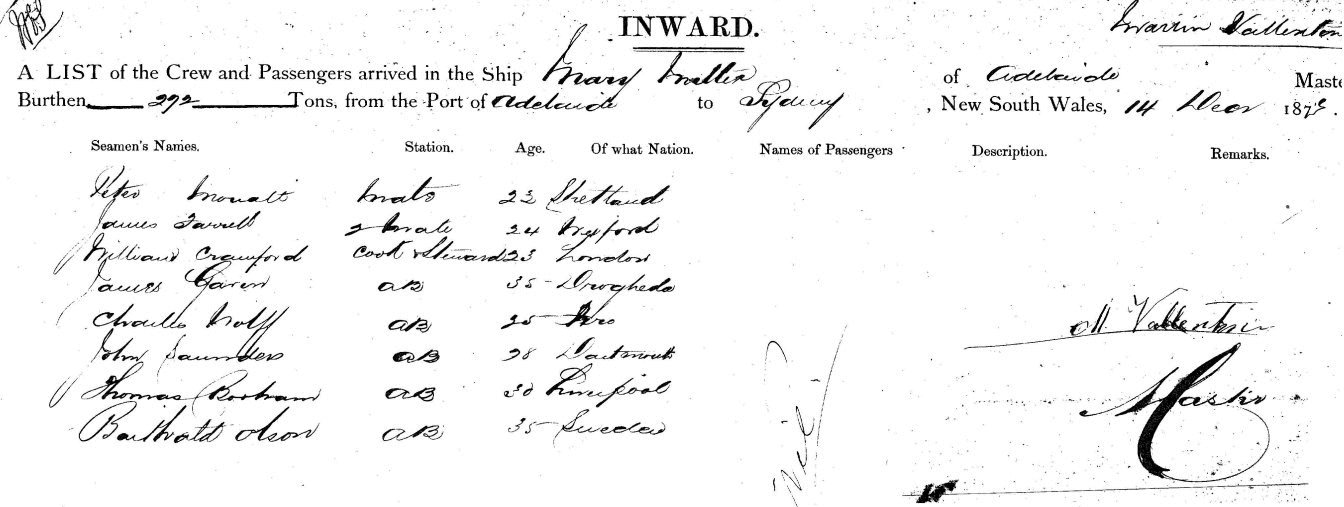 INWARD.
A LIST of the Crew and Passengers arrived in the Ship Mary of Adelaide Maste
Burthen 292 Tons, from the Port of Adelaide to Sydney, New South Wales, 14 Decr 187
Seamen's Names. Station. Age. Of what Nation. Names of Passengers Description. Remarks.
Peter Mouatt Mate 22 Shetland
James Farrell 2 Mate 24 Wexford
William Crawford Cook & Steward 23 London
James AB 35 Drogheda
Charles Wolff AB 25
John Saunders AB 28 Dartmouth
Thomas AB 30 Liverpool
Olson AB 35 Sweden
Nil
M Vallentin
Master